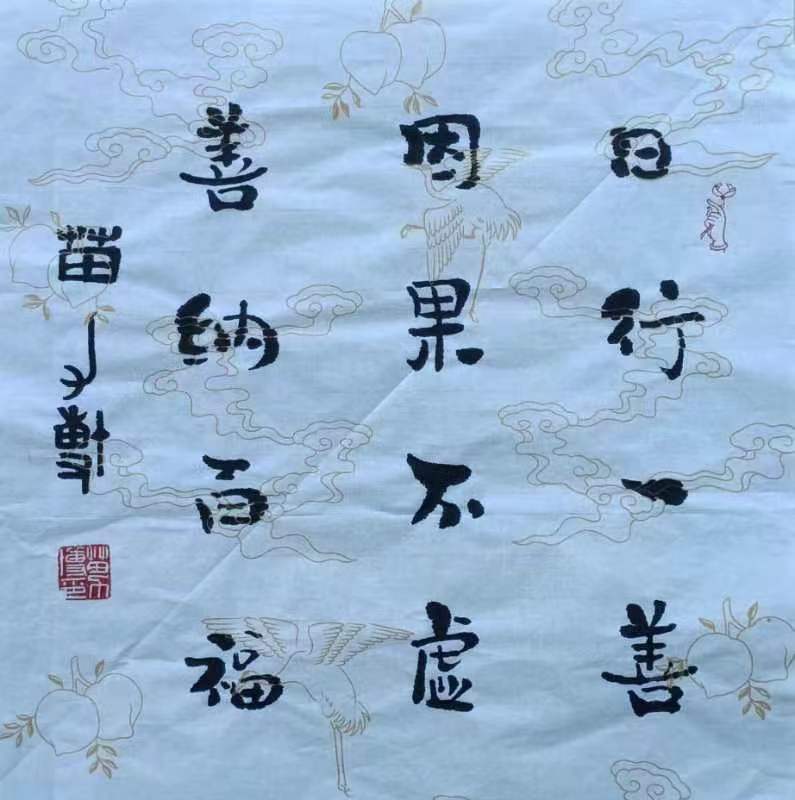 日行一善
因果不虚
善纳百福
苗